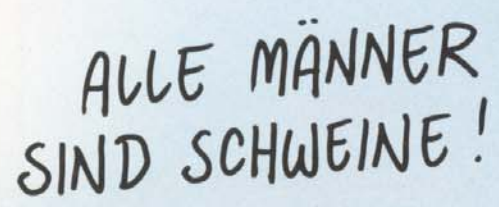 ALLE MÄNNER
SIND SCHWEINE!